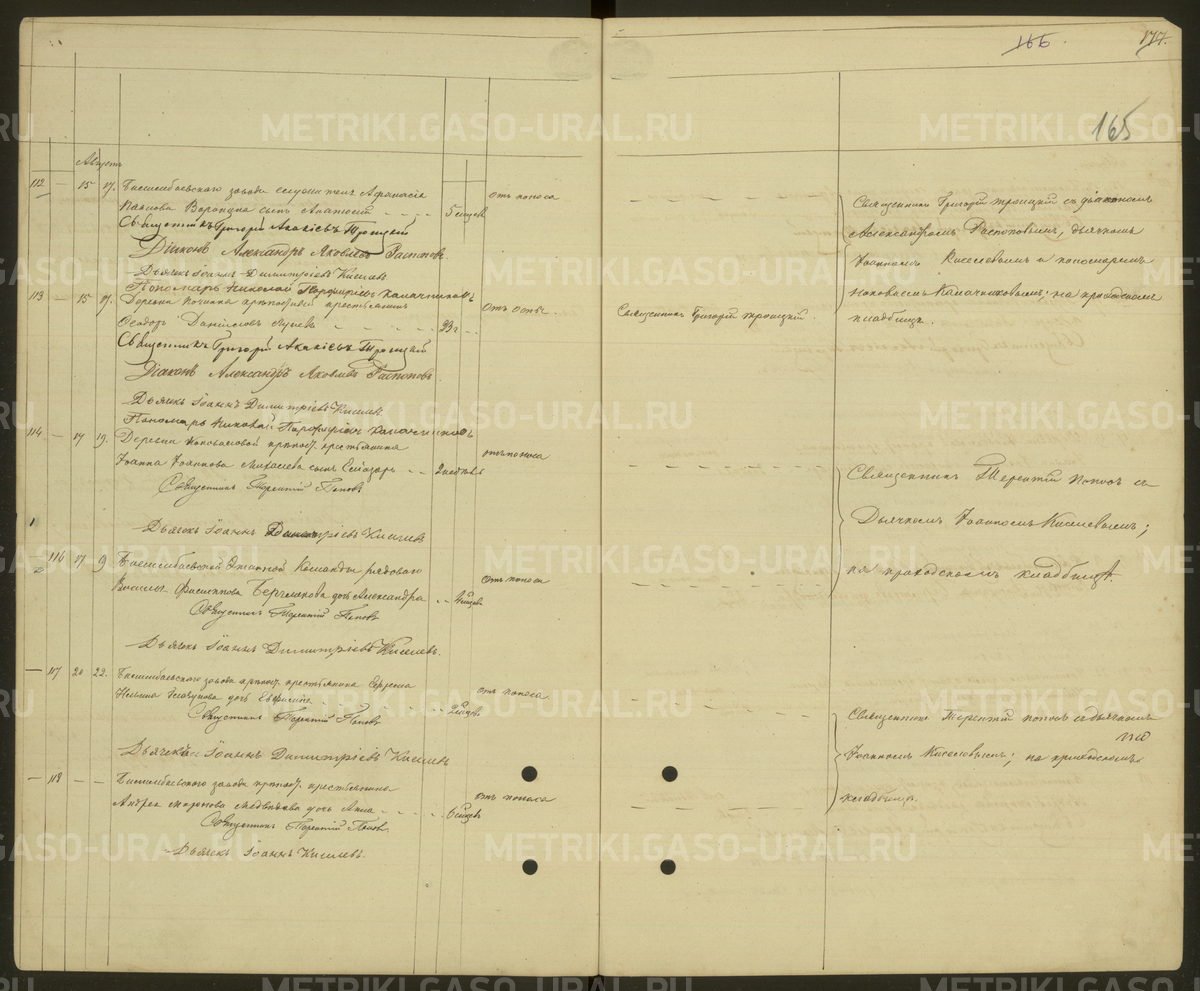 166.
177.
165
Августъ
112 — 15 17. Билимбаевскаго завода служителя Афанасія
Павлова Воронцова сынъ Анатолій 5 мѣсяцевъ
отъ поноса
Священникъ Григорій Акакіевъ Троицкій
Діаконъ Александръ Яковлевъ Распоповъ
Дьячекъ Іоаннъ Димитріевъ Киселевъ
Пономарь Николай Порфиріевъ Калачниковъ
Священникъ Григорій Троицкій съ діакономъ
Александромъ Распоповымъ, дьячкомъ
Іоанномъ Киселевымъ и пономаремъ
Калачниковымъ; на приходскомъ
кладбищѣ.
113 — 15 17. Деревни крѣпостный крестьянинъ
Ѳеодоръ Даниловъ 23 г.
отъ оспы.
Священникъ Григорій Троицкій.
Священникъ Григорій Акакіевъ Троицкій
Діаконъ Александръ Яковлевъ Распоповъ
Дьячекъ Іоаннъ Димитріевъ Киселевъ
Пономарь Николай Порфиріевъ Калачниковъ
114 — 17 19. Деревни Коноваловой крѣпост. крестьянина
Іоанна Іоаннова Михалева сынъ Елиазаръ 2 недѣль
отъ поноса
Священникъ Терентій Поповъ
Дьячекъ Іоаннъ Димитріевъ Киселевъ
Священникъ Терентій Поповъ съ
Дьячкомъ Іоанномъ Киселевымъ;
на приходскомъ кладбищѣ
116 17 19 Билимбаевской Этапной Команды рядоваго
Филиппова дочь Александра мѣсяцевъ
отъ поноса
Священникъ Терентій Поповъ
Дьячекъ Іоаннъ Димитріевъ Киселевъ.
— 117 20 22. Билимбаевскаго завода крѣпост. крестьянина Сергѣя
дочь
отъ поноса
Священникъ Терентій Поповъ
Дьячекъ Іоаннъ Димитріевъ Киселевъ
Священникъ Терентій Поповъ съ дьячкомъ
Іоанномъ Киселевымъ; на приходскомъ
кладбищѣ.
— 118 — — Билимбаевского завода крѣпост. крестьянина
Андрея Медвѣдева дочь Анна 6 мѣсяцевъ
отъ поноса
Священникъ Терентій Поповъ
Дьячекъ Іоаннъ Киселевъ.
METRIKI.GASO-URAL.RU